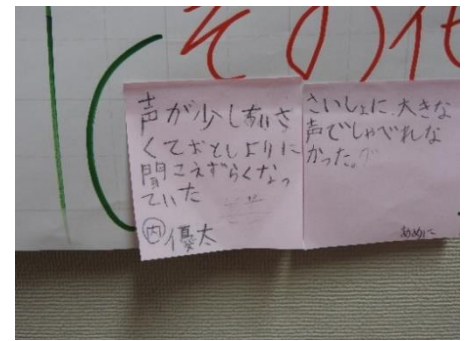 その他
声が少しちいさ
くておとしよりに
聞こえずらくなっ
ていた
内優太
さいしょに、大きな
声でしゃべれな
かった。